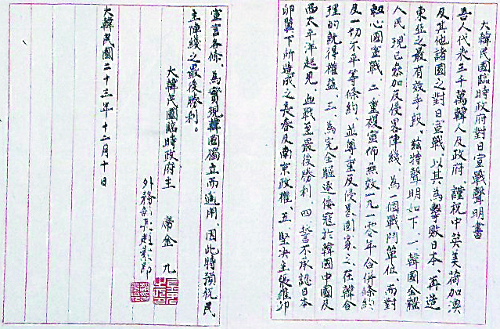 大韓民國臨時政府對日宣戰聲明書
吾人代表三千萬韓人及政府、謹祝中英美荷加澳
及其他諸國之對日宣戰、以其為擊敗日本、再造
東亞之最有效手段、茲特聲明如下、一、韓國全體
人民現已參加反侵畧陣綫、為一個戰鬥單位、而對
軸心國宣戰、二重複宣佈無效一九一〇年合併條約
及一切不平等條約、並尊重反侵畧國家之在韓合
理的既得權益、三、為完全驅逐倭寇於韓國中國及
西太平洋起見、血戰至最後勝利、四誓不承認日本
卵翼下所造成之長春及南京政權、五、堅決主張羅邱
宣言各條、為實現韓國獨立而適用、因此特預祝民
主陣綫之最後勝利。
大韓民國臨時政府主 席金 九
外務部長趙素昻
大韓民國二十三年十二月十日